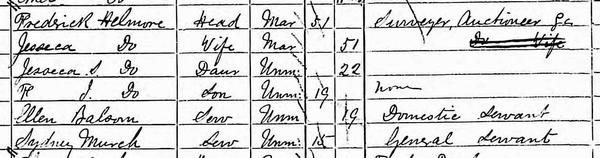 Fredrick Helmore Head Mar 51 Surveyor, Auctioneer &c
Jesseca Do Wife Mar 51 Do Wife
Jesseca S. Do Daur Unm: 22
J. Do Son Unm: 19 None
Ellen Balsom Serv Unm 19 Domestic Servant
Sydney Murch Serv Unm: 15 General Servant